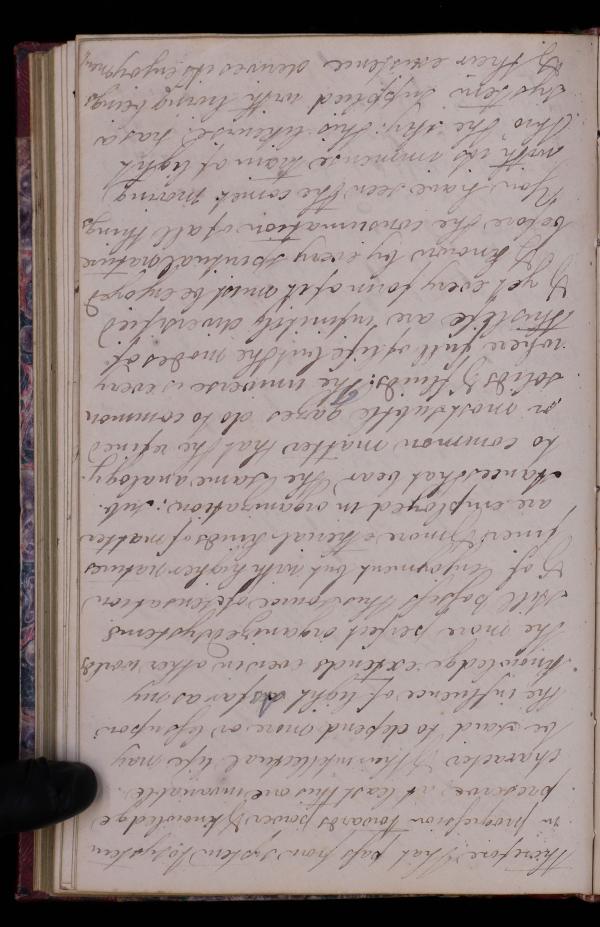 Therefore that pass from system to system
in progression towards power & knowledge
preserve at least this one invariable
character & their intellectual life may
be said to depend more or less upon
the influence of light. As far as my
knowledge extends even in other worlds
the more perfect organized systems
still possess this source of sensation
& of enjoyment but with higher natures
finer & more etherial kinds of matter
are employed in organization: sub.
stances that bear the same analogy.
to common matter that the refined
or most subtle gazes do to common
solids & fluids. The universe is every
where full of life but the modes of
this life are infinitely diversified
& yet every form of it must be enjoyed
& known by every spiritual nature
before the consummation of all things
You have seen the comet moving
with its immense train of light
thro the sky: this likewise has a
system supplied with living beings
& their existence derives its enjoyment